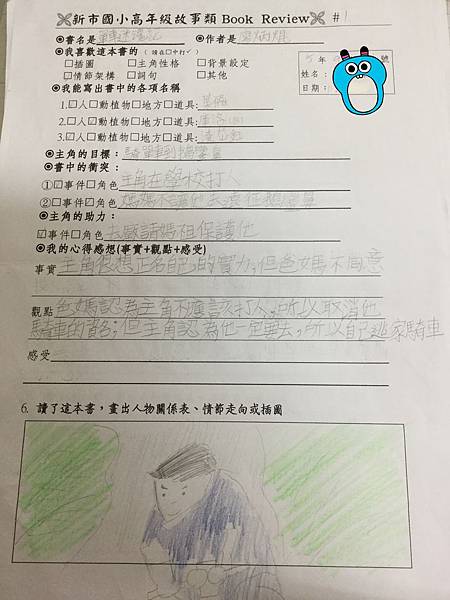 新市國小高年級故事類 Book Review #1
◎書名是 單車 ◎作者是
◎我喜歡這本書的（請在□中打✓）
□插圖 □主角性格 □背景設定
☑情節架構 □詞句 □其他
年 號
姓名：
日期：
◎我能寫出書中的各項名稱
1.☑人□動植物□地方□道具:
2.□人☑動植物□地方□道具:
3.☑人□動植物□地方□道具:
◎主角的目標：騎單車到
◎書中的衝突：
①☑事件□角色 主角在學校打人
②□事件☑角色 媽媽不讓他去
◎主角的助力：
☑事件□角色 去 媽祖保護他
◎我的心得感想(事實+觀點+感受)
事實 主角很想正名自己的實力,但爸媽不同意
觀點 爸媽認為主角不應該打人,所以取消他
騎車的資名;但主角認為他一定要去,所以自己逃家騎車
感受
6. 讀了這本書，畫出人物關係表、情節走向或插圖